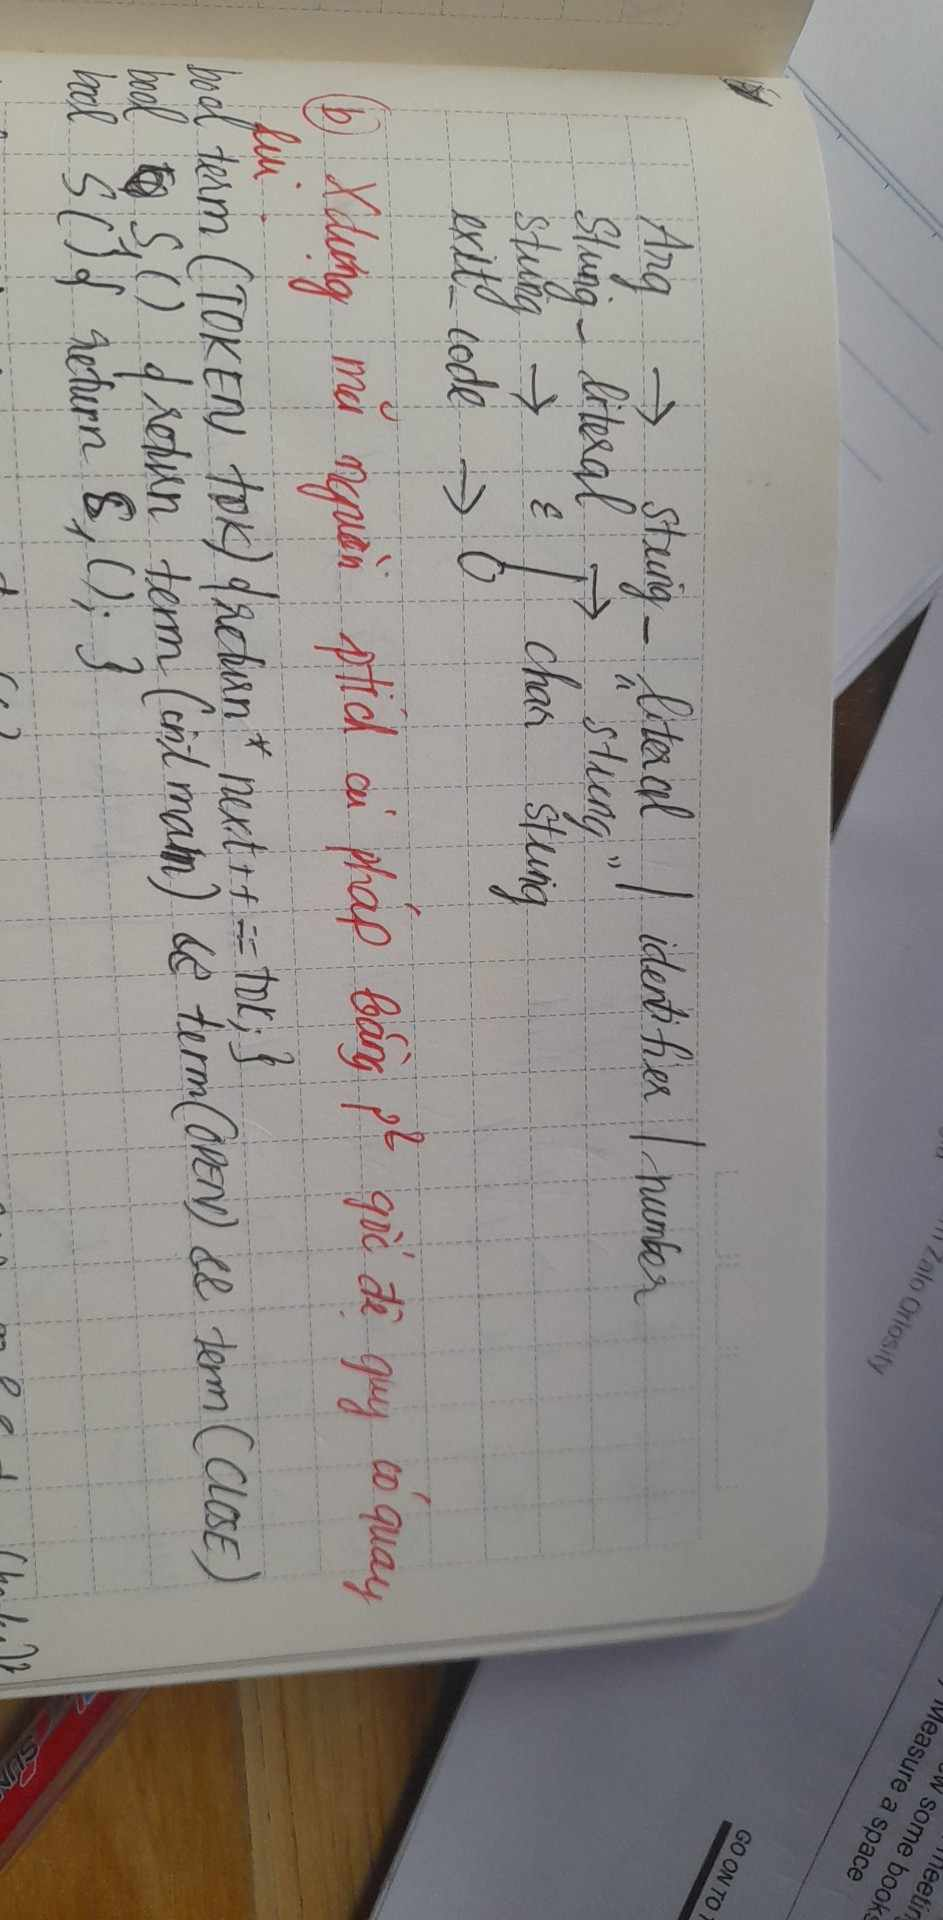 Arg → string - literal | identifier | number
string - literal → " string "
string → ε | char string
exit_code → 0
(b) Xdựng mã nguồn ptích cú pháp bằng p² gọi đệ quy có quay
lui.
bool term (TOKEN tok) { return * next++ == tok; }
bool S₁() { return term (int main) && term(OPEN) && term (CLOSE)
bool S() { return S₁(); }
Zalo Oriosity
GO ON TO
Measure a space
ew some books
meeting